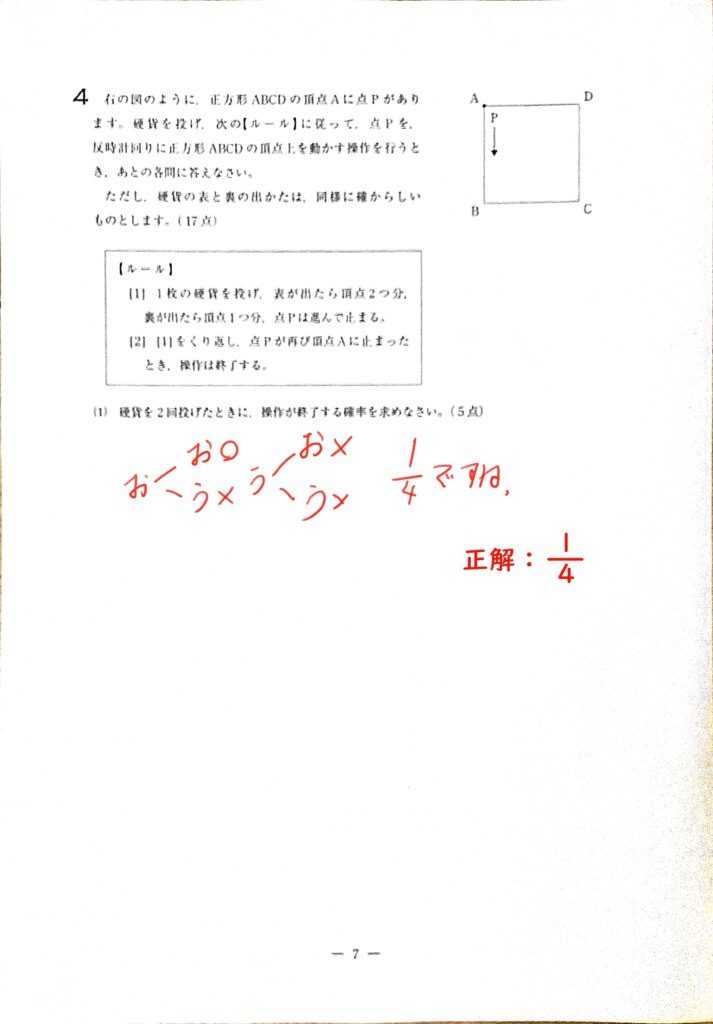 4 右の図のように，正方形 ABCD の頂点 A に点 P があり
ます。硬貨を投げ，次の【ルール】に従って，点 P を，
反時計回りに正方形 ABCD の頂点上を動かす操作を行うと
き，あとの各問に答えなさい。
ただし，硬貨の表と裏の出かたは，同様に確からしい
ものとします。(17点)
A
D
P
B
C
【ルール】
[1] 1枚の硬貨を投げ，表が出たら頂点2つ分，
裏が出たら頂点1つ分，点Pは進んで止まる。
[2] [1]をくり返し，点Pが再び頂点Aに止まった
とき，操作は終了する。
(1) 硬貨を2回投げたときに，操作が終了する確率を求めなさい。(5点)
お お○ う×
う お× う×
1/4 ですね，
正解：1/4
— 7 —